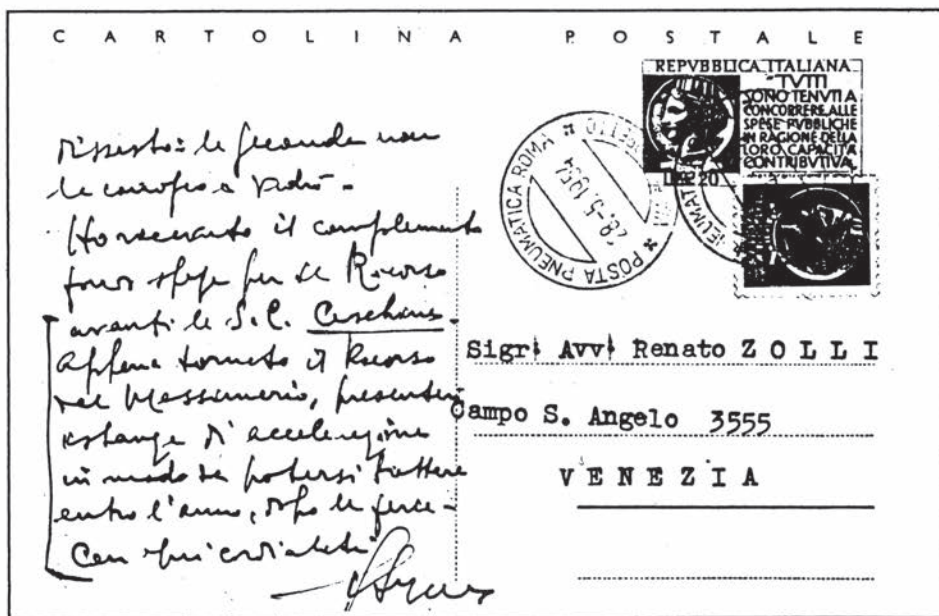 CARTOLINA POSTALE
REPVBBLICA ITALIANA
TVTTI
SONO TENVTI A
CONCORRERE ALLE
SPESE PVBBLICHE
IN RAGIONE DELLA
LORO CAPACITÀ
CONTRIBVTIVA
LIRE 20
POSTA PNEUMATICA ROMA
28.-5.1954
dissesto: le seconde non
Ho ricevuto il complemento
fondo spese per il Ricorso
avanti la S.C. Ceschens.
Appena tornato il Ricorso
dal Messaggero, presenterò
istanza di accelerazione
in modo da potersi battere
entro l'anno, dopo le ferie.
Con ogni cordialità
Sigr. Avv. Renato ZOLLI
Campo S. Angelo 3555
VENEZIA